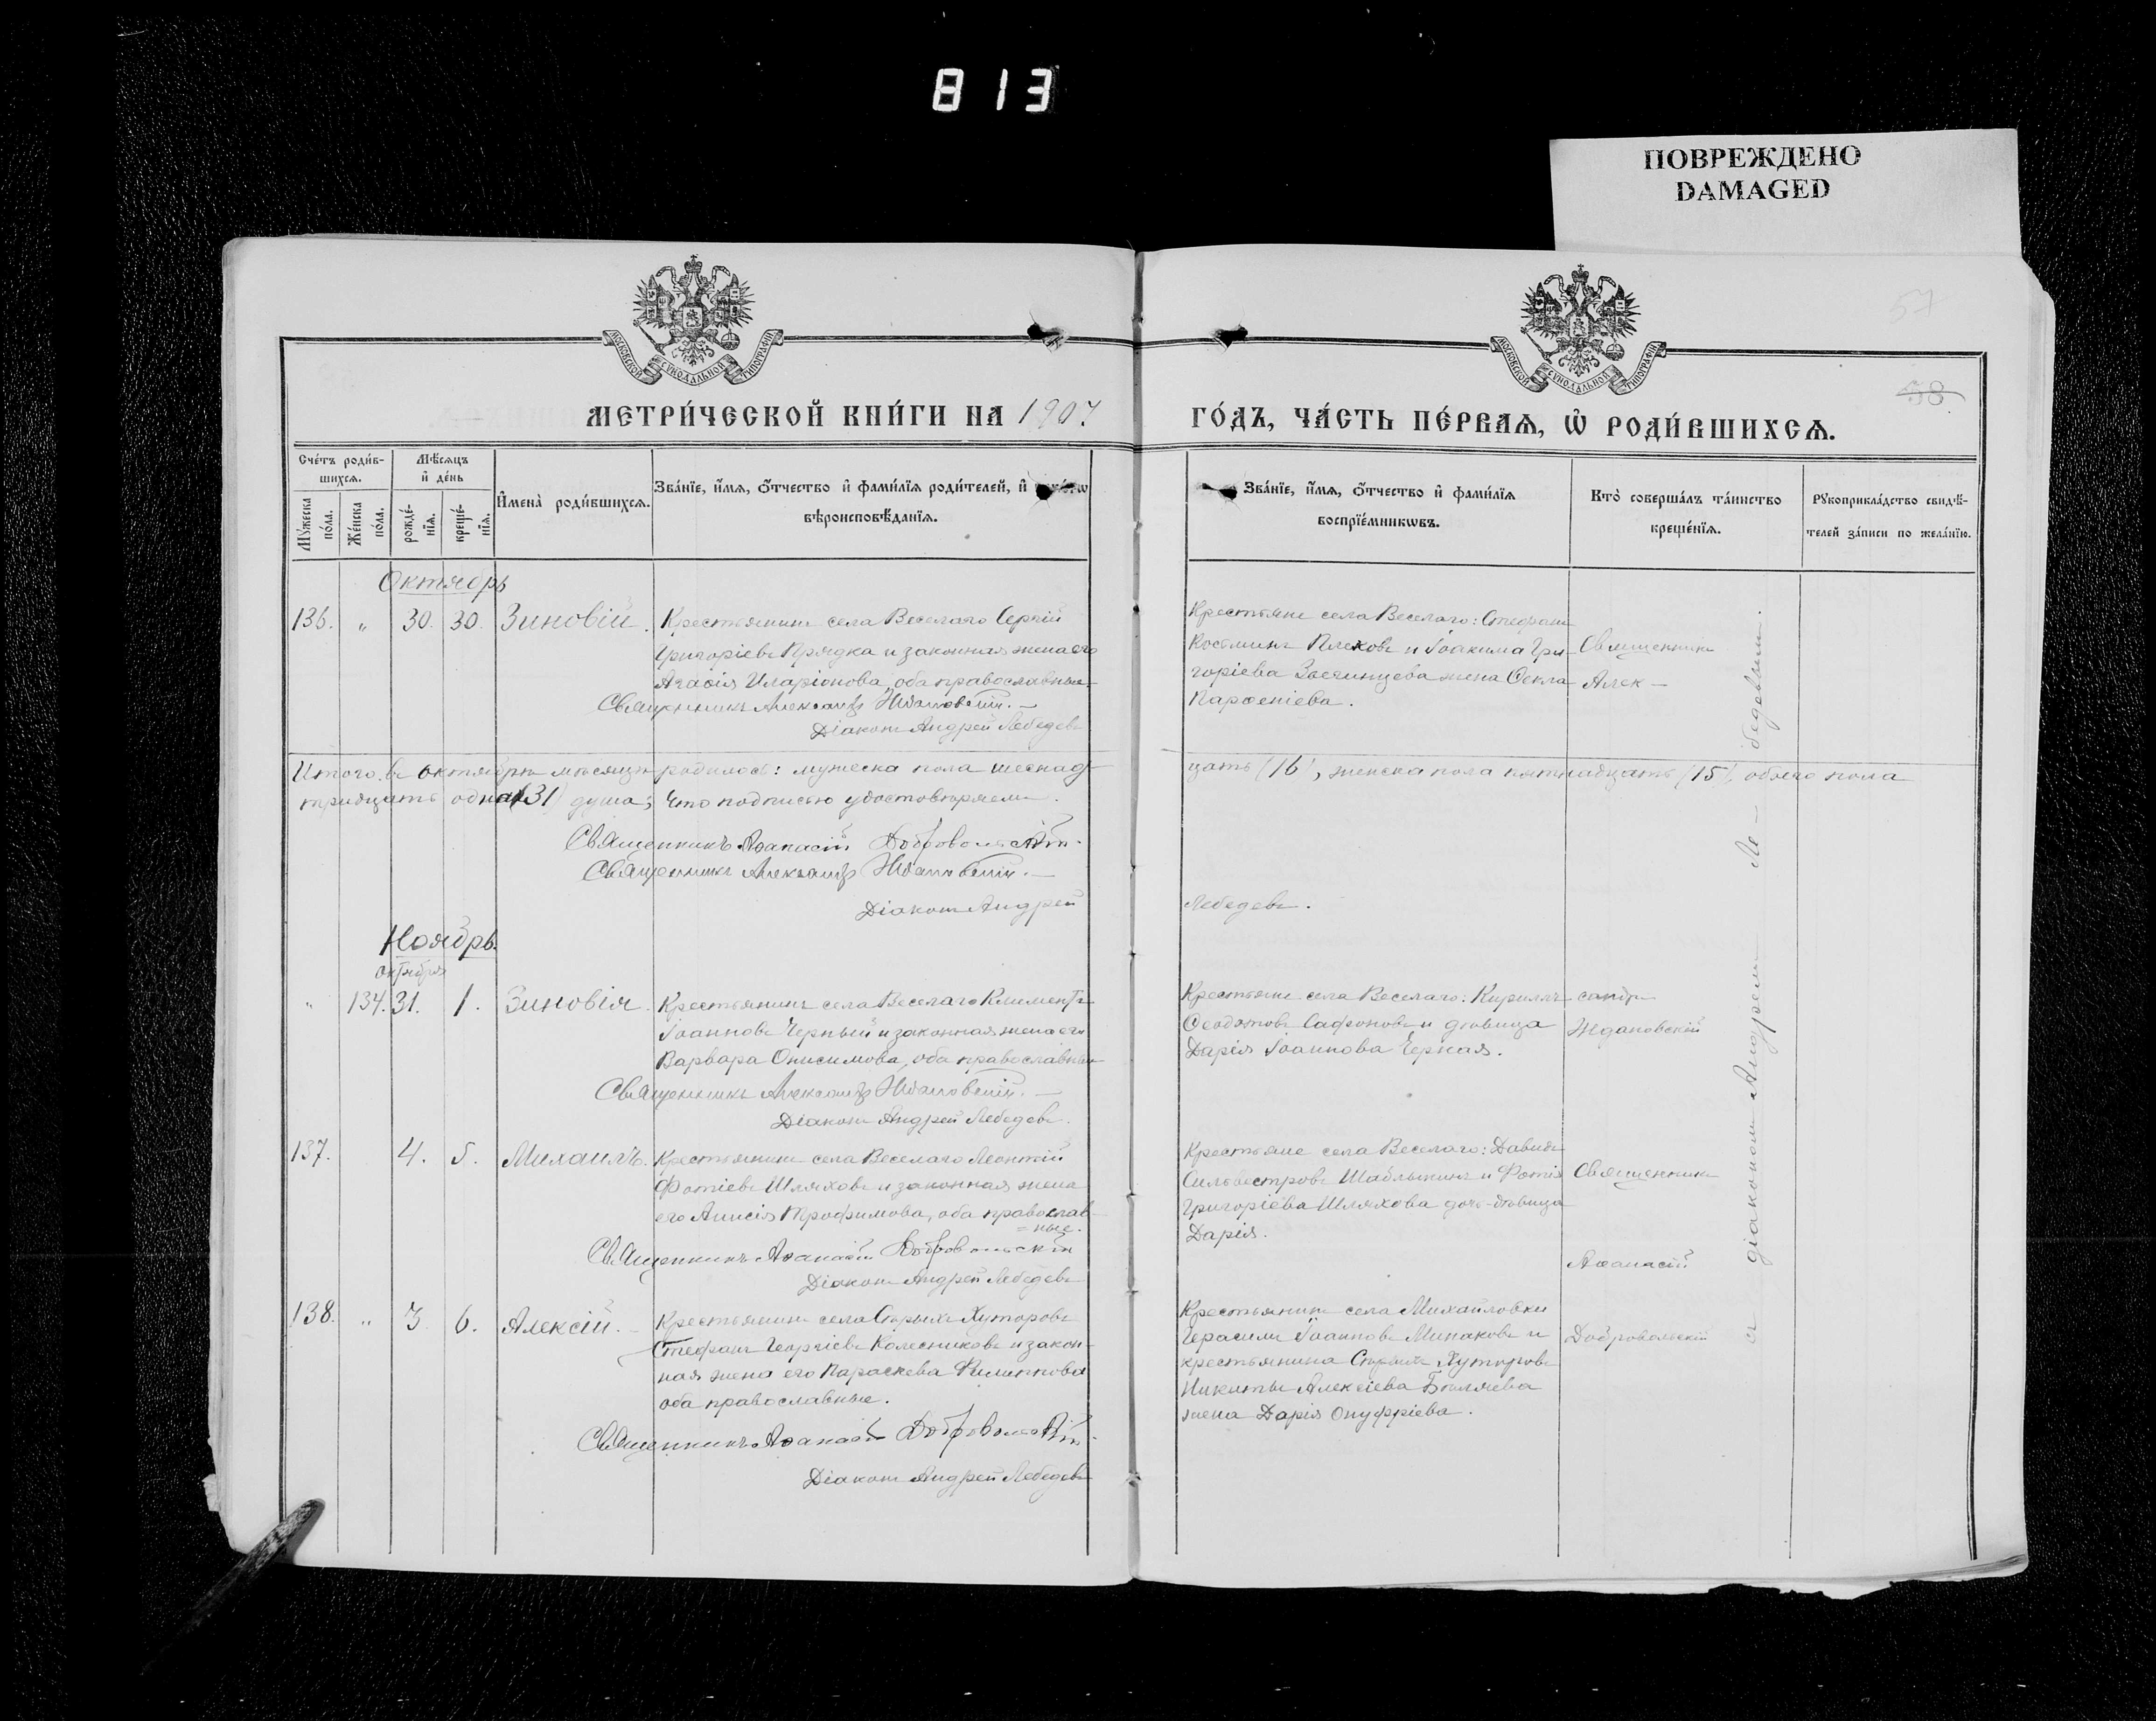 813
ПОВРЕЖДЕНО
DAMAGED
57
58
МОСКОВСКОЙ СѴНОДАЛЬНОЙ ТИПОГРАФІИ
МОСКОВСКОЙ СѴНОДАЛЬНОЙ ТИПОГРАФІИ
МЕТРИ́ЧЕСКОЙ КНИ́ГИ НА 1907.
ГО́ДЪ, ЧА́СТЬ ПЕ́РВАѦ, Ѡ҆ РОДИ́ВШИХСѦ.
Сче́тъ роди́в-
шихсѧ.
Мѣ́сѧцъ
и҆ де́нь
Мꙋ́жеска
по́ла.
Же́нска
по́ла.
рожде́-
нїѧ.
креще́-
нїѧ.
И҆мена̀ роди́вшихсѧ.
Зва́нїе, и҆́мѧ, ѻ҆́тчество и҆ фами́лїѧ роди́телей, и҆
вѣроисповѣ́данїѧ.
Зва́нїе, и҆́мѧ, ѻ҆́тчество и҆ фами́лїѧ
воспрїе́мникѡвъ.
Кто̀ соверша́лъ та́инство
креще́нїѧ.
Рꙋкоприкла́дство свидѣ́-
телей за́писи по жела́нїю.
Октябрь
136. „ 30. 30. Зиновій.
Крестьянинъ села Веселаго Сергій
Григоріевъ Прядка и законная жена его
Агаѳія Иларіонова, оба православные.
Священникъ Александръ Ждановскій.
Діаконъ Андрей Лебедевъ
Крестьяне села Веселаго: Стефанъ
Косьминъ Плеховъ и Іоакима Гри-
горіева жена Ѳекла
Парѳеніева.
Священникъ
Алек-
Итого въ октябрѣ мѣсяцѣ родилось: мужеска пола шеснад-
цать (16), женска пола пятнадцать (15), обоего пола
тридцать одна (31) душа; что подписью удостовѣряемъ.
Священникъ Аѳанасій Добровольскій.
Священникъ Александръ Ждановскій.
Діаконъ Андрей
Лебедевъ.
Ноябрь.
октября
„ 134. 31. 1. Зиновія.
Крестьянинъ села Веселаго Климентъ
Іоанновъ Черный и законная жена его
Варвара Онисимова, оба православные
Священникъ Александръ Ждановскій.
Діаконъ Андрей Лебедевъ.
Крестьяне села Веселаго: Кириллъ
Ѳеодотовъ Сафоновъ и дѣвица
Дарія Іоаннова Черная.
сандръ
Ждановскій
137. 4. 5. Михаилъ.
Крестьянинъ села Веселаго Леонтій
Фотіевъ Шляховъ и законная жена
его Анисія Трофимова, оба православ-
=ные.
Священникъ Аѳанасій Добровольскій
Діаконъ Андрей Лебедевъ
Крестьяне села Веселаго: Давидъ
Сильвестровъ Шаблыкинъ и Фотія
Григоріева Шляхова дочь-дѣвица
Дарія.
Священникъ
Аѳанасій
138. „ 3. 6. Алексій.
Крестьянинъ села Старыхъ Хуторовъ
Стефанъ Георгіевъ Колесниковъ и закон-
ная жена его Параскева Филиппова
оба православные.
Священникъ Аѳанасій Добровольскій.
Діаконъ Андрей Лебедевъ
Крестьянинъ села Михайловки
Герасимъ Іоанновъ Минаковъ и
крестьянина Старыхъ Хуторовъ
Никиты Алексіева Бѣляева
жена Дарія Онуфріева.
Добровольскій
и діакономъ Андреемъ Ле-бедевымъ.